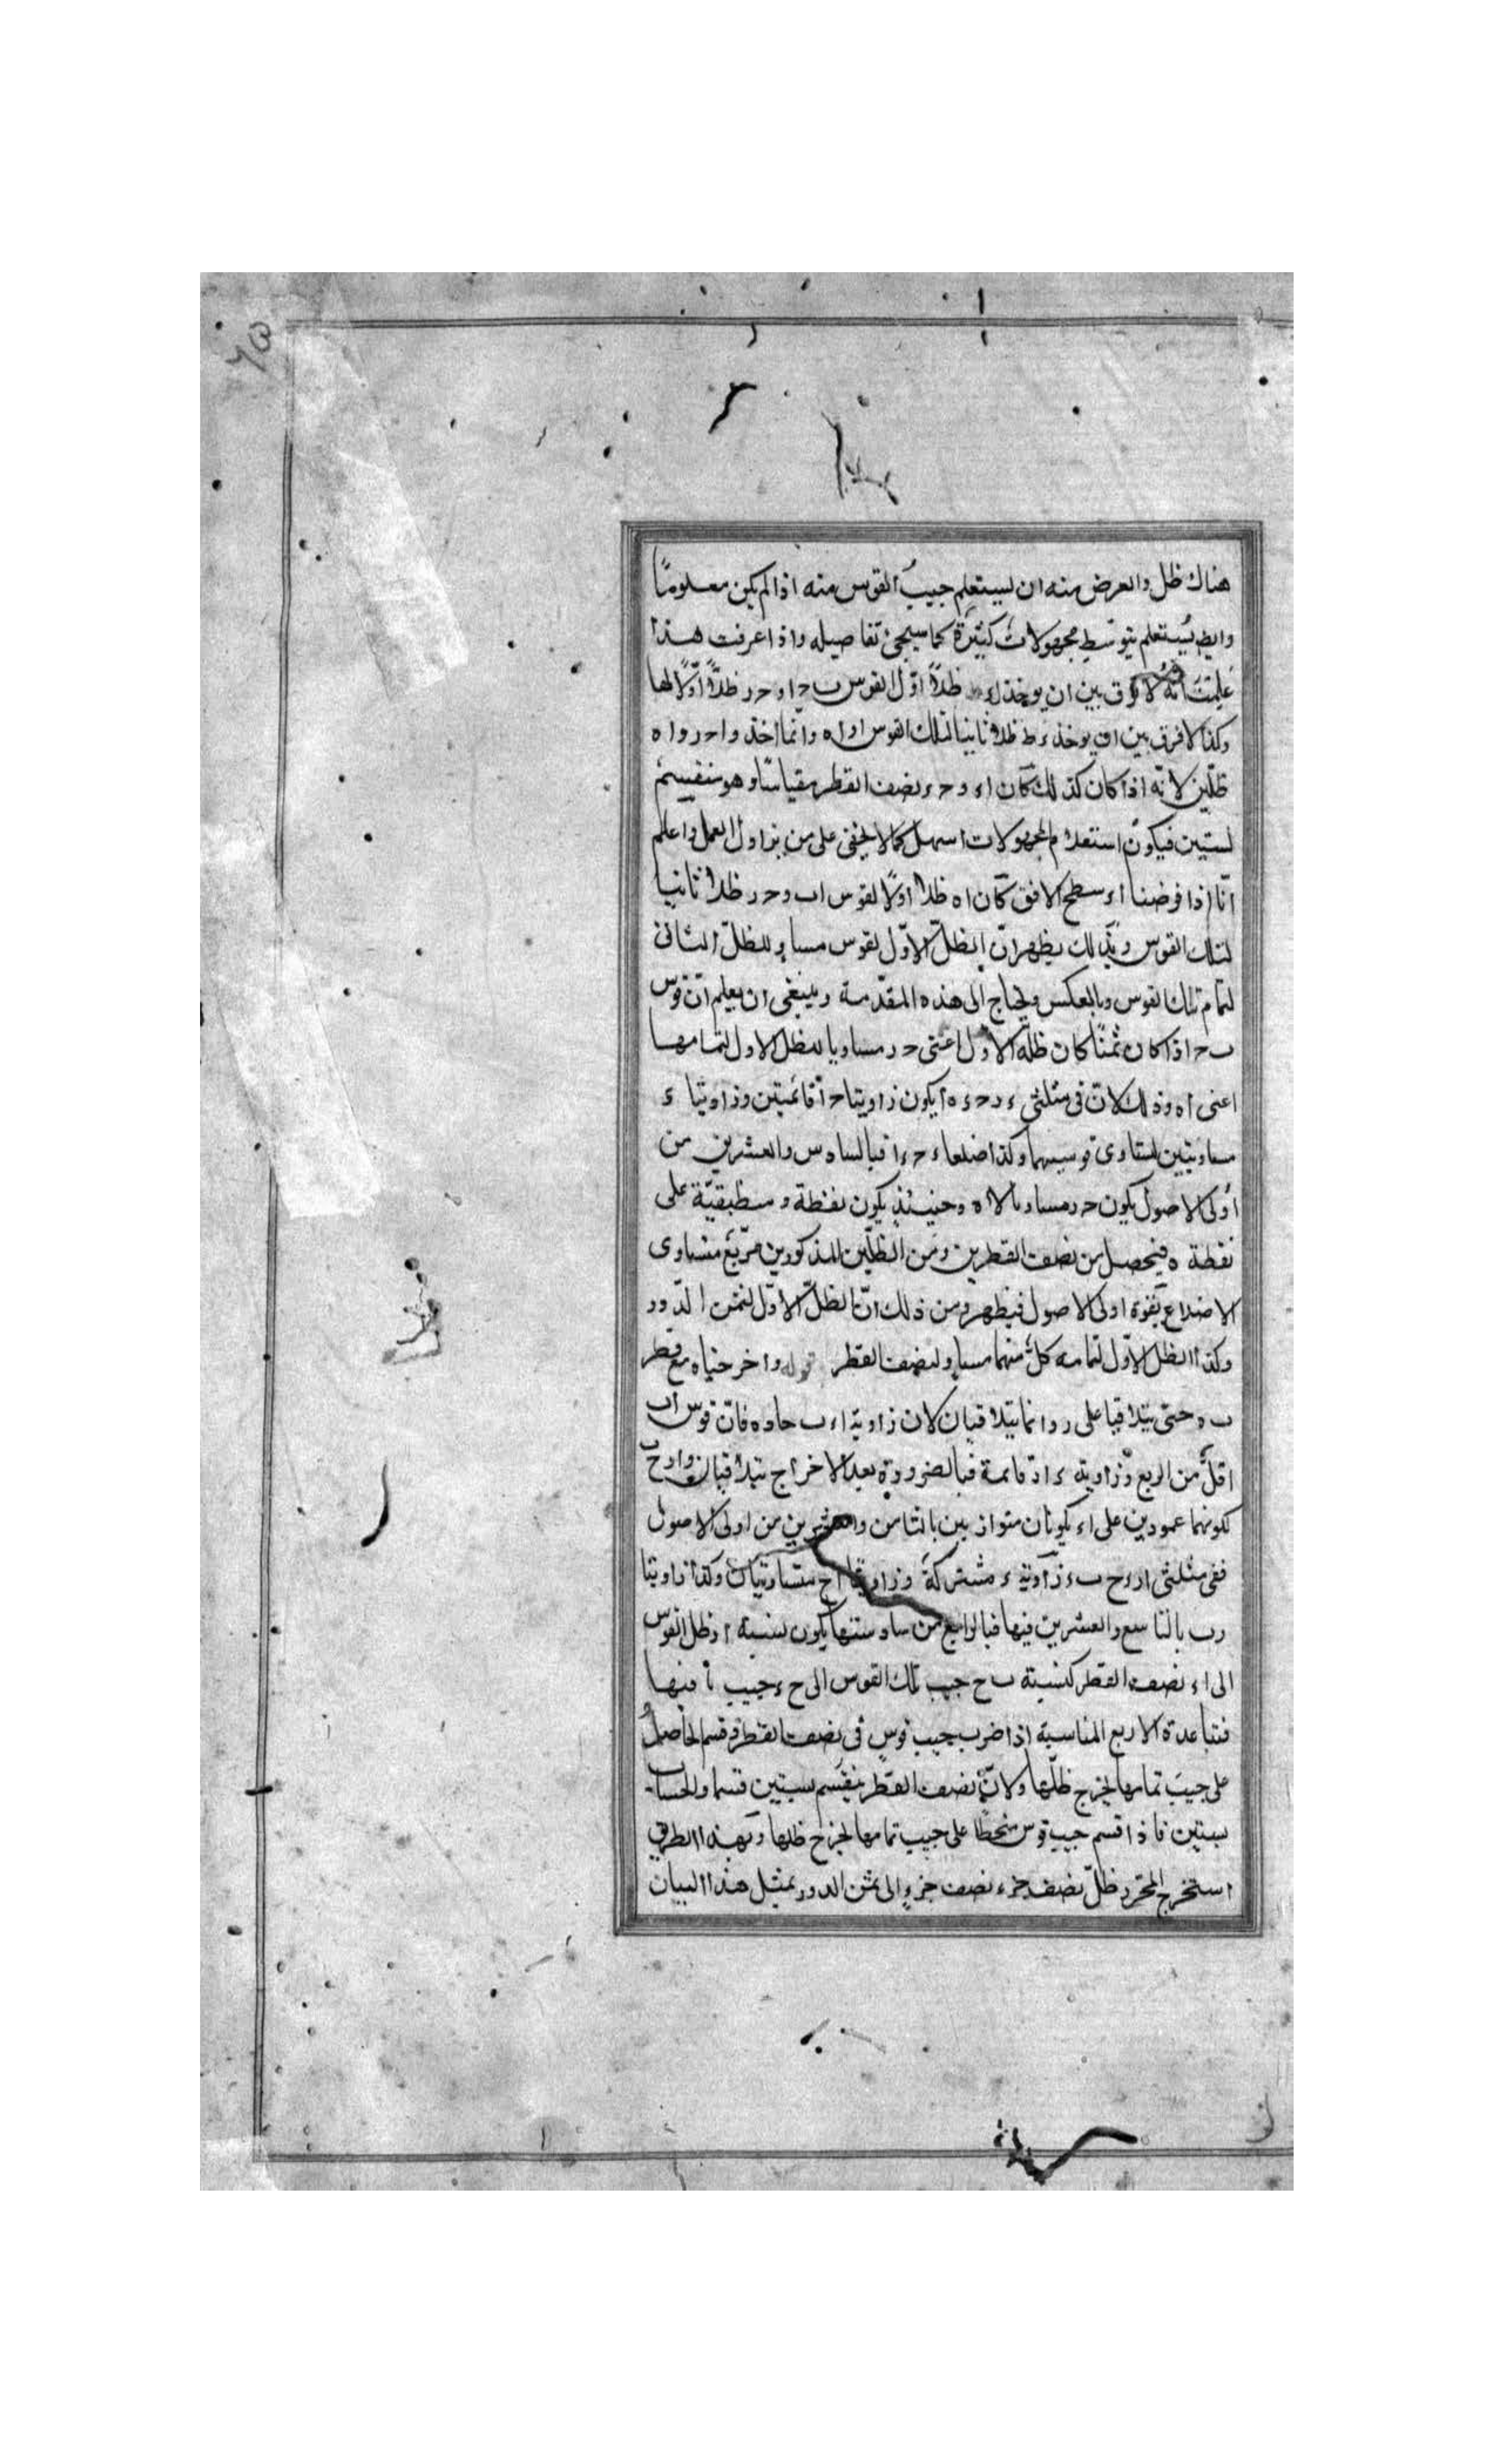 ٧٥
هناك ظل والعرض منه ان ليستعلم جيب القوس منه اذا لم يكن معلومًا
وايض يُستعلم بتوسّط مجهولات كثيرة كما سيجئ تفاصيله واذا عرفت هذا
علمتَ انّه لا فرق بين ان يوخذ ظلاً اوّل القوس ب ح او ح ر ظلاًّ اوّلاً لها
وكذا لا فرق بين ان يوخذ ء ط ظلا ثانيا لتلك القوس او ا ه وانّما اخذ واحد ر و ا ه
ظلّين لانّه اذا كان كذلك كان ا ء و ح ء نصف القطر مقياسًا وهو منقسم
لستين فيكون استعلام المجهولات اسهل كما لا يخفى على من يزاول العمل واعلم
انّا اذا فرضنا ا ء سطح الافق كان ا ه ظلا اوّلاً لقوس ا ب و ح ر ظلا ثانيا
لتلك القوس وبذلك يظهر انّ الظلّ الاوّل لقوس مساوٍ للظلّ الثانى
لتمام تلك القوس وبالعكس ويحتاج الى هذه المقدّمة وينبغى ان يعلم انّ قوس
ب ح اذا كان ثمنًا كان ظلّه الاوّل اعنى ح ر مساويا للظل الاول لتمامها
اعنى ا ه وذلك لانّ فى مثلثى ء ر ح ء ه ا يكون زاويتا ح ا قائمتين وزاويتا ء
متساويتين لتساوى قوسيهما وكذا ضلعا ء ح ء ا فبالسادس والعشرين من
اُولى الاصول يكون ح ر مساويا لا ه وحينئذٍ يكون نقطة ر منطبقيّة على
نقطة ه فيحصل من نصف القطرين ومن الظلّين المذكورين مربّع متساوى
الاضلاع بقوة اولى الاصول فيظهر من ذلك انّ الظلّ الاوّل لثمن الدّور
وكذا الظل الاوّل لتمامه كلّ منهما مساوٍ لنصف القطر قوله واخرجناه مع قطر
ب ء حتى يتلاقيا على ر وانما يتلاقيان لان زاوية ا ء ب حادة فانّ قوس ا ب
اقلّ من الربع وزاوية ء ا ر قائمة فبالضرورة بعد الاخراج يتلاقيان و ا ر ح ب
لكونهما عمودين على ا ء يكونان متوازيين بالثامن والعشرين من اولى الاصول
ففى مثلثى ا ر ء ح ب ء زاوية ء مشتركة وزاويتا ا ح متساويتان وكذا زاويتا
ر ب بالتاسع والعشرين فيها فبالرابع من سادستها يكون نسبة ا ر ظل القوس
الى ا ء نصف القطر كنسبة ب ح جيب تلك القوس الى ح ء جيب تمامها
فبقاعدة الاربع المتناسبة اذا ضرب جيب قوس فى نصف القطر وقسم الحاصلُ
على جيب تمامها يخرج ظلّها ولانّ نصف القطر ينقسم بستين قسما والحساب
بستين فاذا قسم جيب قوس منحطًّا على جيب تمامها يخرج ظلها وبهذا الطريق
استخرج المحرّر ظلّ نصف جزء نصف جزءٍ الى ثمن الدور بمثل هذا البيان